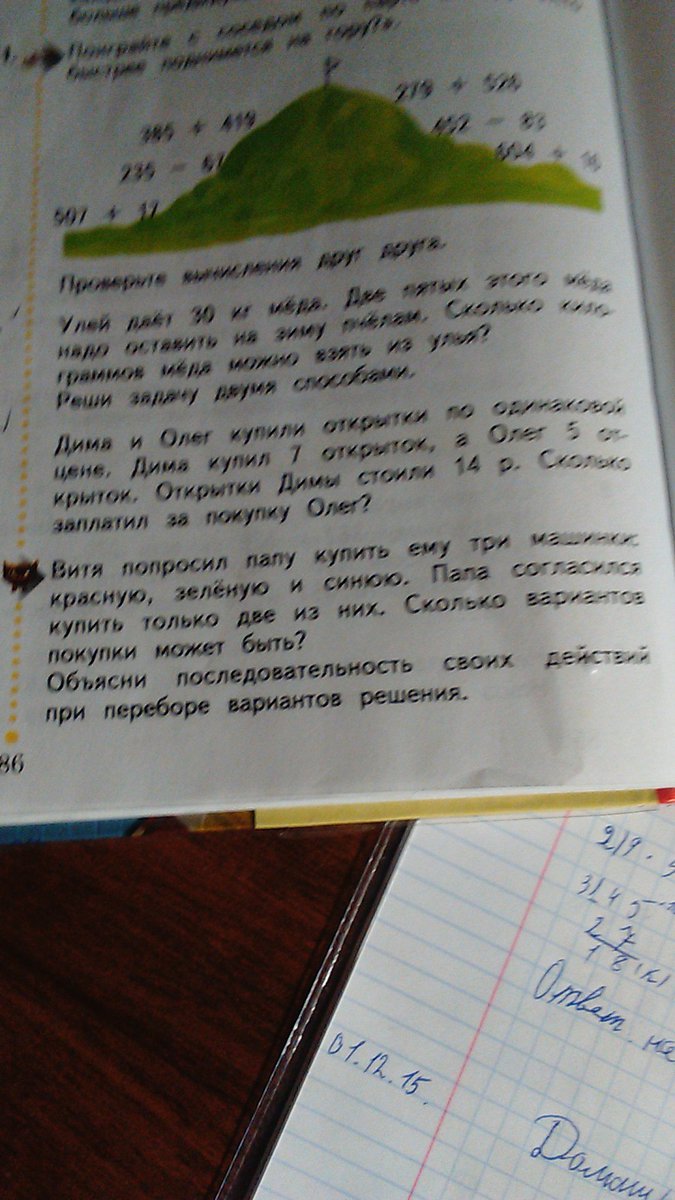 больше
1. Поиграйте с соседом по
быстрее поднимется на гору?».
385 + 419
279 + 526
235 − 67
452 − 83
507 + 17
604 + 16
Проверьте вычисления друг друга.
Улей даёт 30 кг мёда. Две пятых этого мёда
надо оставить на зиму пчёлам. Сколько кило-
граммов мёда можно взять из улья?
Реши задачу двумя способами.
Дима и Олег купили открытки по одинаковой
цене. Дима купил 7 открыток, а Олег 5 от-
крыток. Открытки Димы стоили 14 р. Сколько
заплатил за покупку Олег?
Витя попросил папу купить ему три машинки:
красную, зелёную и синюю. Папа согласился
купить только две из них. Сколько вариантов
покупки может быть?
Объясни последовательность своих действий
при переборе вариантов решения.
86
Ответ.
01.12.15.